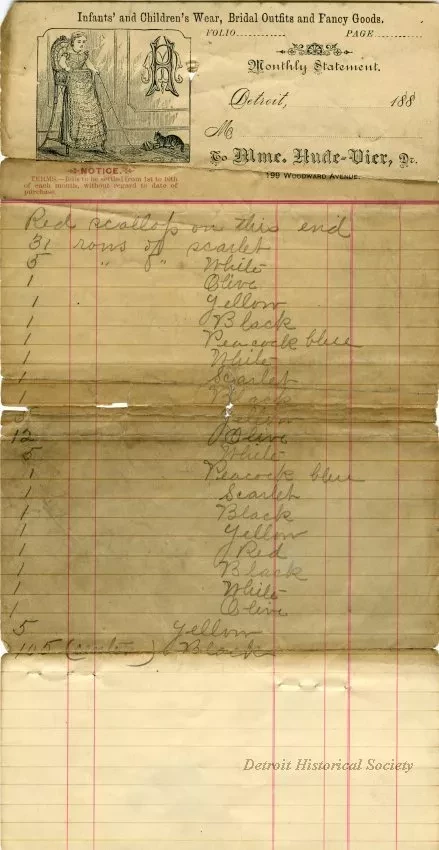 Infants' and Children's Wear, Bridal Outfits and Fancy Goods.
FOLIO............ PAGE............
Monthly Statement.
Detroit, 188
M
To Mme. Hude-Vier, Dr.
199 WOODWARD AVENUE.
NOTICE.
TERMS.—Bills to be settled from 1st to 10th
of each month, without regard to date of
purchase.
Red scallop on this end
31 rows of scarlet
5 " " White
1 Olive
1 Yellow
1 Black
1 Peacock blue
1 White
1 Scarlet
1 Black
Yellow
12 Olive
5 White
1 Peacock blue
1 Scarlet
1 Black
1 Yellow
1 Red
1 Black
1 White
1 Olive
5 Yellow
105 (center) Black
Detroit Historical Society